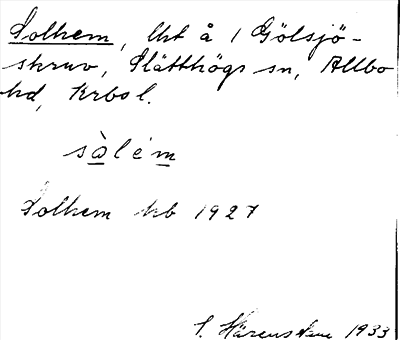 Solhem, lht å 1 Gölsjö-
skruv, Slätthögs sn, Allbo
hd, Krbol.
sàlém
Solhem kb 1927
S. Härenstam 1933